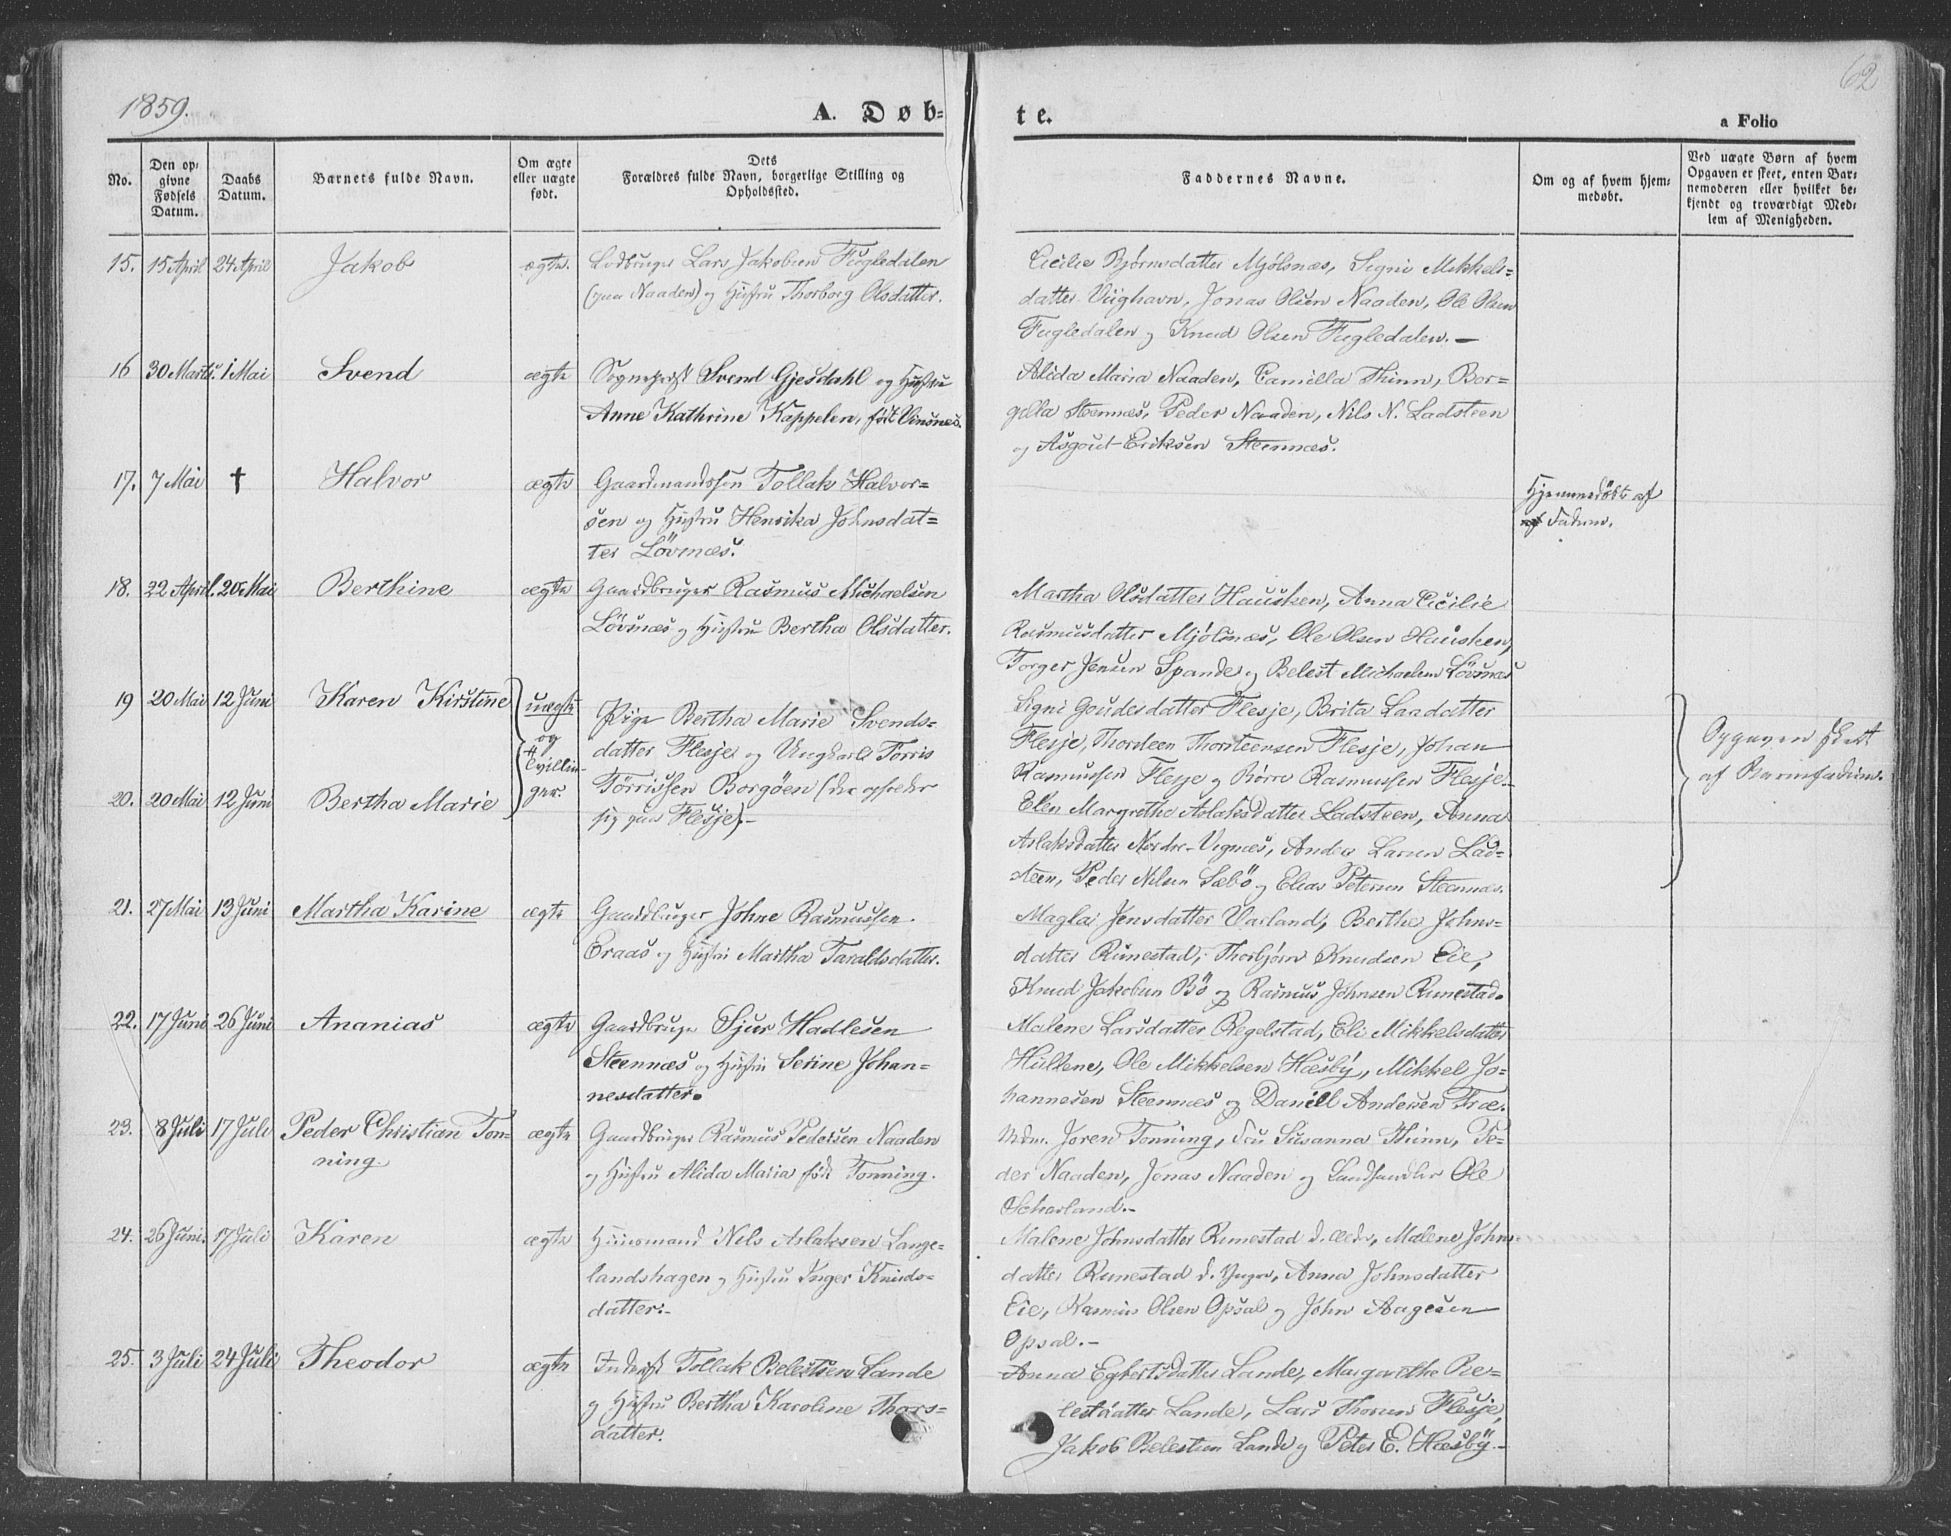 1859.
62
A. Døb-
te.
a Folio
No.
Den op-
givne
Fødsels
Datum.
Daabs
Datum.
Barnets fulde Navn.
Om ægte
eller uægte
født.
Dets
Forældres fulde Navn, borgerlige Stilling og
Opholdssted.
Faddernes Navne.
Om og af hvem hjem-
medøbt.
Ved uægte Børn af hvem
Opgaven er skeet, enten Bar-
nemoderen eller hvilket be-
kjendt og troværdigt Med-
lem af Menigheden.
15. 15 April 24 April Jakob ægte. Lodbruger Lars Jakobsen Fugledalen
(paa Naaden) og Hustru Thorborg Olsdatter.
Cicilie Bjørnsdatter Mjølsnæs, Signi Mikkels-
datter Viighavn, Jonas Olsen Naaden, Ole Olsen
Fugledalen og Knud Olsen Fugledalen. —
16 30 Marts 1 Mai Svend ægte Sognepræst Svend Gjesdahl og Hustru
Anne Kathrine Kappelen, født Vinsnes.
Alida Maria Naaden, Camilla Thinn, Bor-
gilla Steennæs, Peder Naaden, Nils N. Ladsteen
og Asgout Eriksen Steennæs.
17. 7 Mai † Halvor ægte Gaardmandssøn Tollak Halvor-
sen og Hustru Henrika Johnsdat-
ter Løvsnæs.
Hjemmedøbt af
Faderen.
18. 22 April. 20 Mai Berthine ægte Gaardbruger Rasmus Michaelsen
Løvsnæs og Hustru Bertha Olsdatter.
Martha Olsdatter Hausken, Anna Cicilie
Rasmusdatter Mjølsnæs, Ole Olsen Hausken,
Torger Jensen Spande og Belest Michaelsen Løvsnæs
19 20 Mai 12 Juni Karen Kirstine uægte
og
Tvillin-
ger.
Pige Bertha Marie Svends-
datter Flesje og Ungkarl Torris
Tørrissen Borgøen (der opholder
sig paa Flesje). —
Signi Goudesdatter Flesje, Brita Larsdatter
Flesje, Thordeen Thorsteensen Flesje, Johan
Rasmussen Flesje og Børre Rasmussen Flesje.
Opgaven skeet
af Barnefaderen.
20. 20 Mai 12 Juni Bertha Marie
Elen Margrethe Aslaksdatter Ladsteen, Anna
Aslaksdatter Nordre-Vignæs, Anders Larsen Lad-
steen, Peder Nilsen Sæbø og Elias Petersen Steennæs.
21. 27 Mai 13 Juni Martha Karine ægte Gaardbruger Johne Rasmussen
Eraas og Hustru Martha Taraldsdatter.
Magla Jensdatter Varland, Berthe Johns-
datter Runestad, Thorbjørn Knudsen Eie,
Knud Jakobsen Bø og Rasmus Johnsen Runestad.
22. 17 Juni 26 Juni Ananias ægte Gaardbruger Sjur Hadlesen
Steennæs og Hustru Serine Johan-
nesdatter.
Malene Larsdatter Regelstad, Eli Mikkelsdatter
Hullene, Ole Mikkelsen Hæsby, Mikkel Jo-
hannesen Steennæs og Daniel Andersen Træ.
23. 8 Juli 17 Juli Peder Christian Ton-
ning ægte Gaardbruger Rasmus Pedersen Naaden
og Hustru Alida Maria født Tonning.
Mdm. Joren Tonning, Fru Susanna Thinn, Pe-
der Naaden, Jonas Naaden og Landhandler Ole
Scharland. —
24. 26 Juni. 17 Juli Karen ægte Huusmand Nils Aslaksen Lange-
landshagen og Hustru Inger Knuds-
datter. —
Malene Johnsdatter Runestad d. Ældre, Malene Johns-
datter Runestad d. Yngre, Anna Johnsdatter
Eie, Rasmus Olsen Opsal og John Aagesen
Opsal. —
25. 3 Juli 24 Juli Theodor ægte Inderst Tollak Belestsen Lande
og Hustru Bertha Karoline Thors-
datter.
Anna Egbertsdatter Lande, Margarethe Be-
lestdatter Lande, Lars Thorsen Flesje,
Jakob Belestsen Lande og Peter E. Hæsby. —